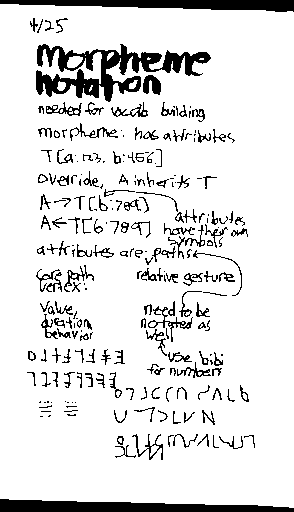 4/25
morpheme
notation
needed for vocab building
morpheme: has attributes
T[a:123, b:456]
override, A inherits T
A→T[b:789]
A←T[b:789]
attributes
have their own
symbols
attributes are paths
core path
vertex:
value,
duration
behavior
relative gesture
need to be
notated as
well
use bibi
for numbers